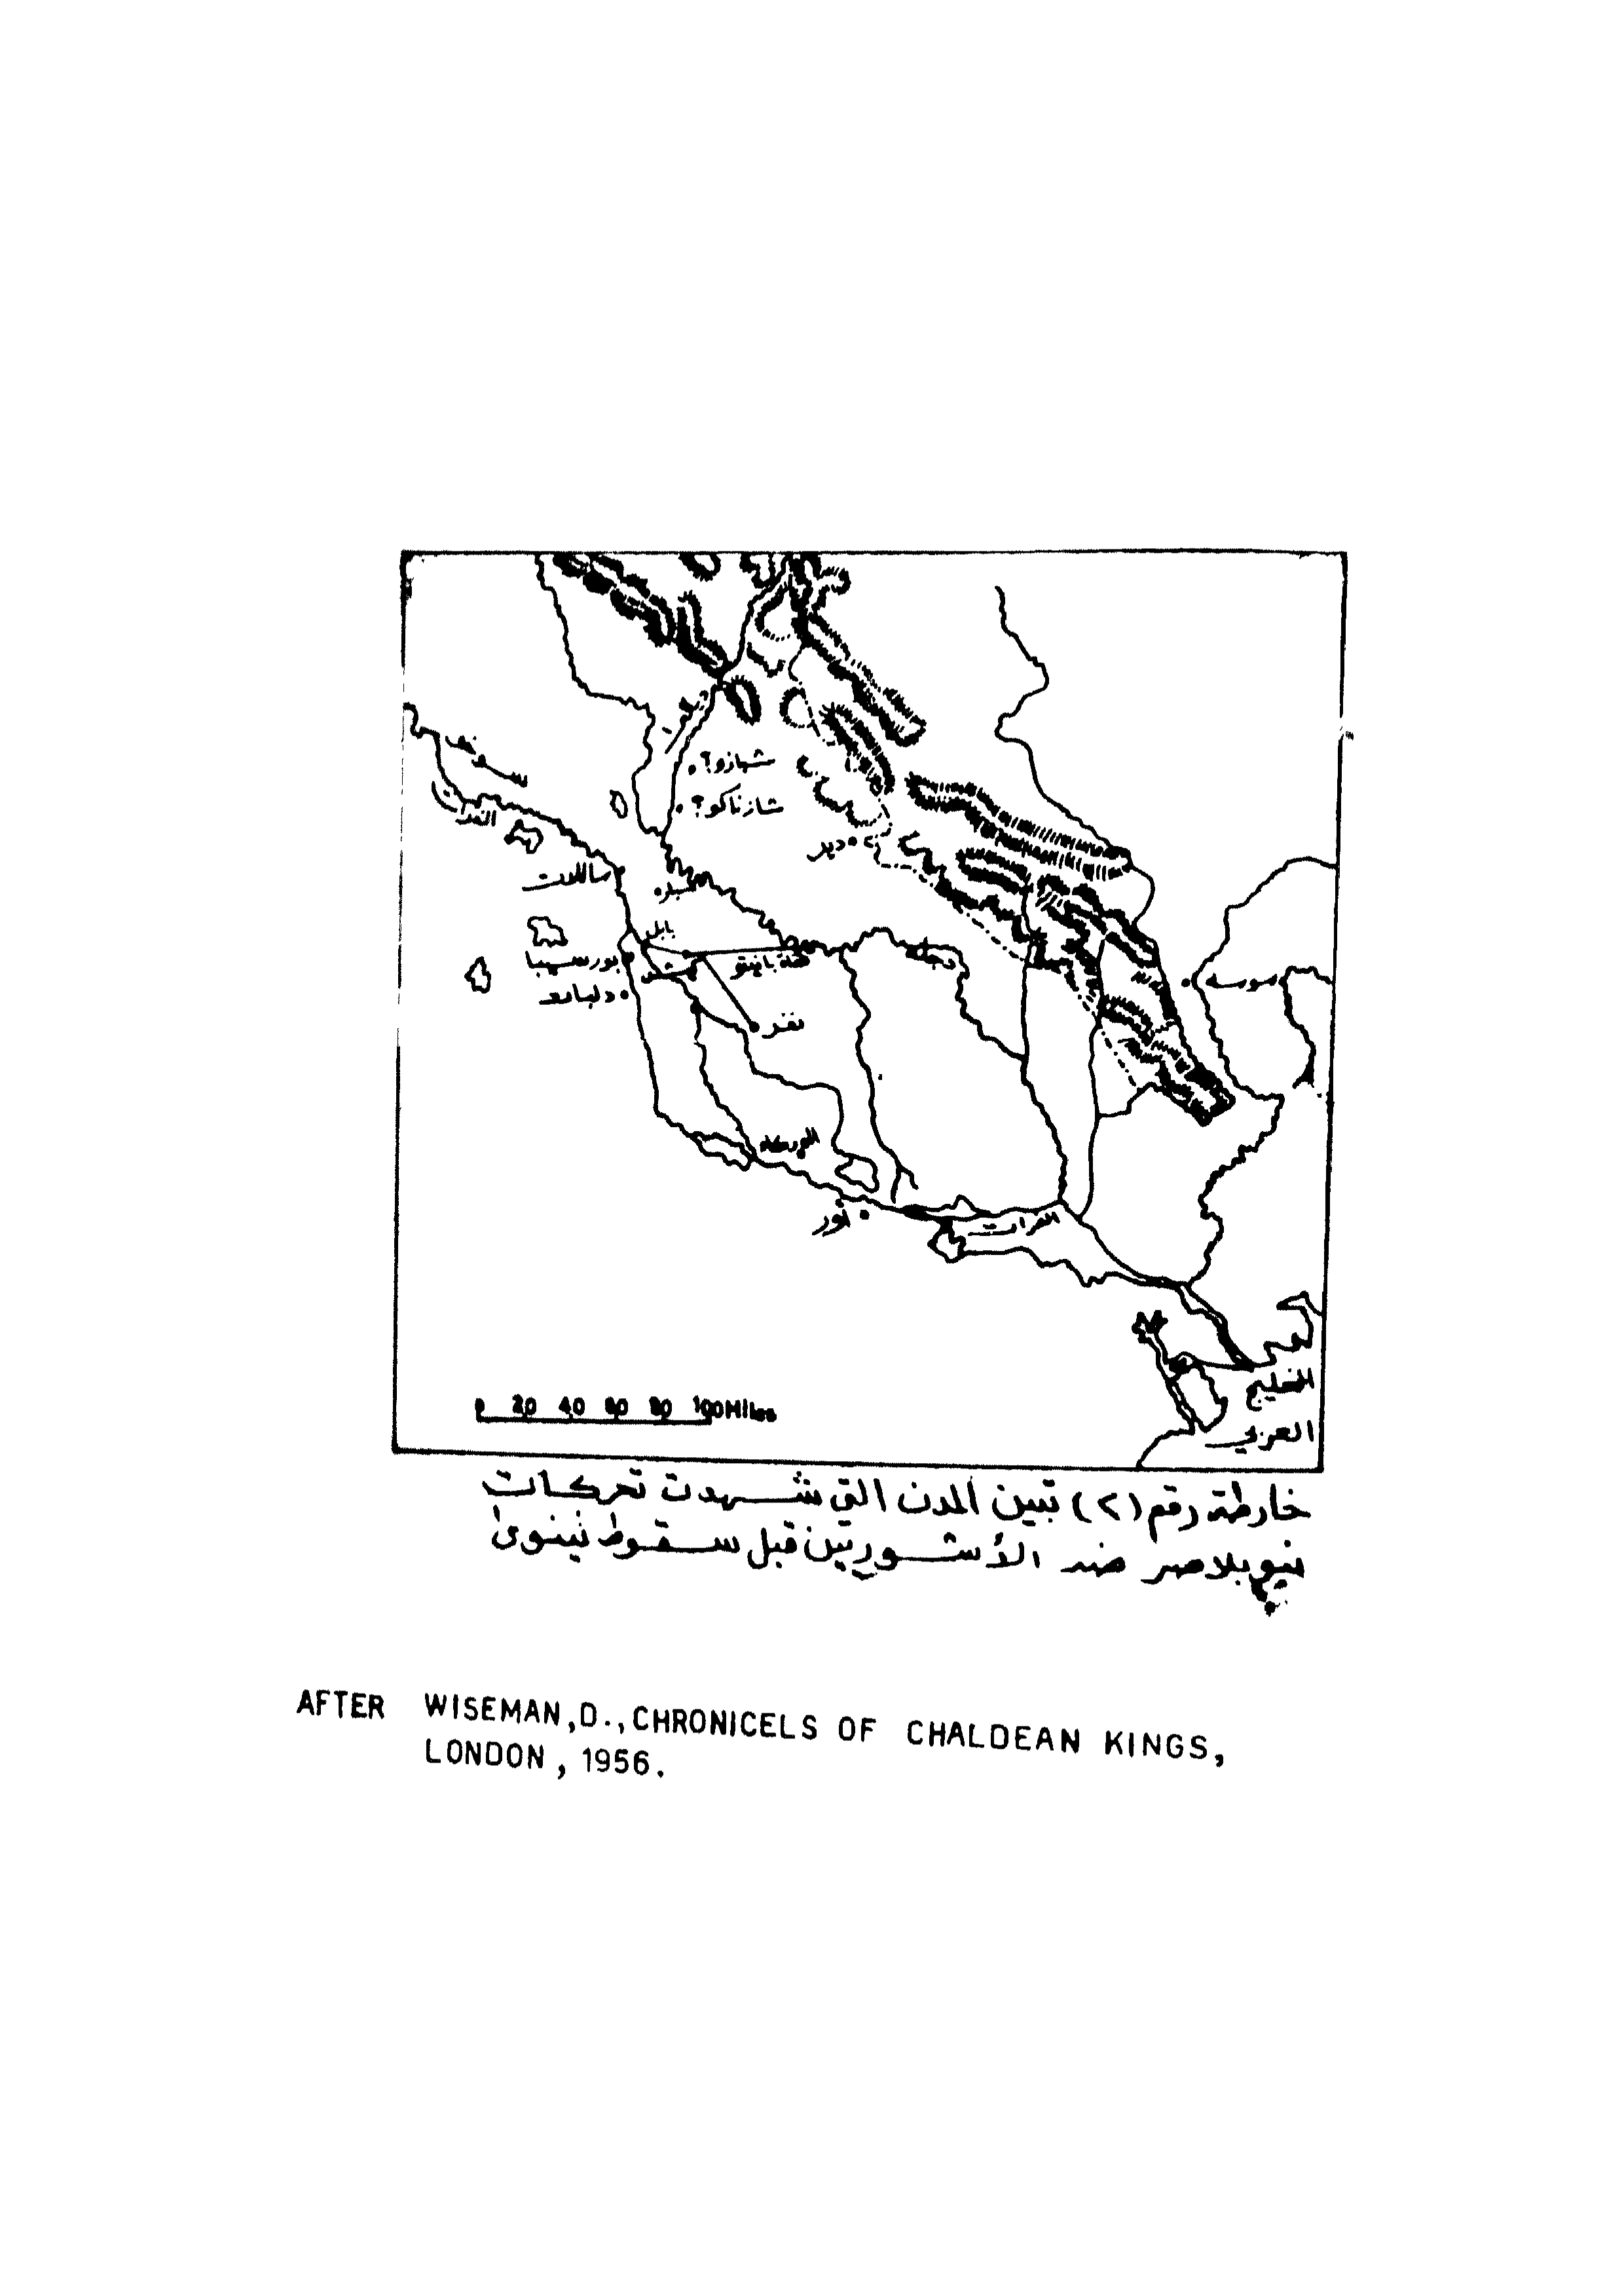 شبازو؟
شازناكو؟
دير
بابل
بورسيبا
دلبات
نفر
دجلة
الوركاء
أور
الفرات
الخليج
العربي
0 20 40 60 80 100 Miles
خارطة رقم (٢) تبين المدن التي شهدت تحركات
نبوبلاصر ضد الأشوريين قبل سقوط نينوى
AFTER WISEMAN, D., CHRONICELS OF CHALDEAN KINGS,
LONDON, 1956.